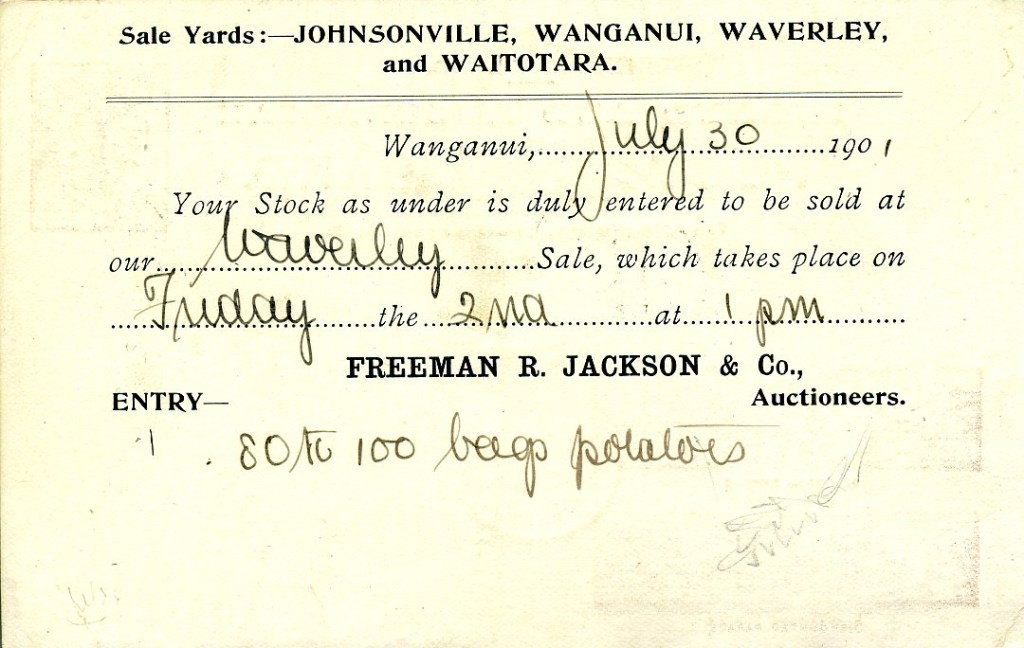 Sale Yards:—JOHNSONVILLE, WANGANUI, WAVERLEY,
and WAITOTARA.
Wanganui, July 30 1901
Your Stock as under is duly entered to be sold at
our Waverley Sale, which takes place on
Friday the 2nd at 1 pm
FREEMAN R. JACKSON & Co.,
Auctioneers.
ENTRY—
80 to 100 bags potatoes